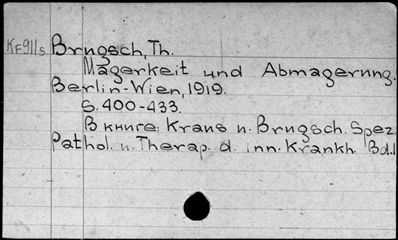 KF911s Brugsch, Th.
Magerkeit und Abmagerung.
Berlin-Wien, 1919.
S. 400-433.
В книге: Kraus u. Brugsch. Spez.
Pathol. u. Therap. d. inn. Krankh. Bd.I